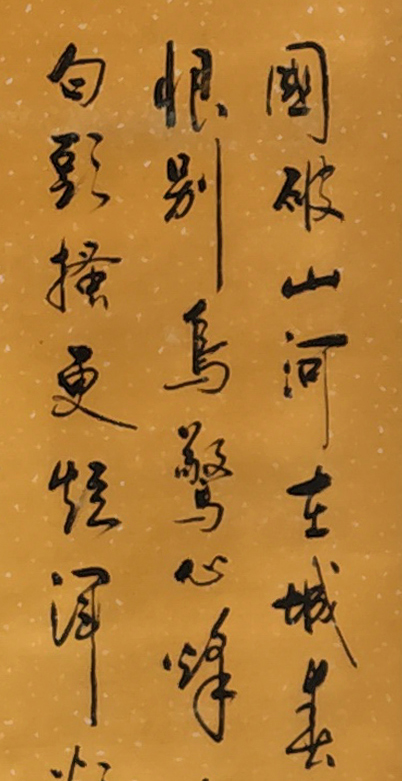 國破山河在城春
恨别鳥驚心烽
白頭搔更短渾